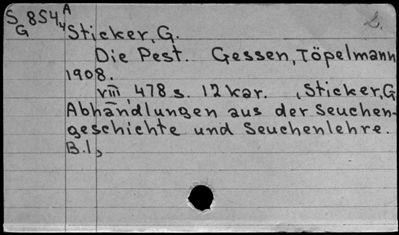 S 854 A
G 4 Sticker, G.
2.
Die Pest. Gessen, Töpelmann
1908.
VIII, 478 s. 12 kar. , Sticker, G
Abhandlungen aus der Seuchen-
geschichte und Seuchenlehre.
B.1,